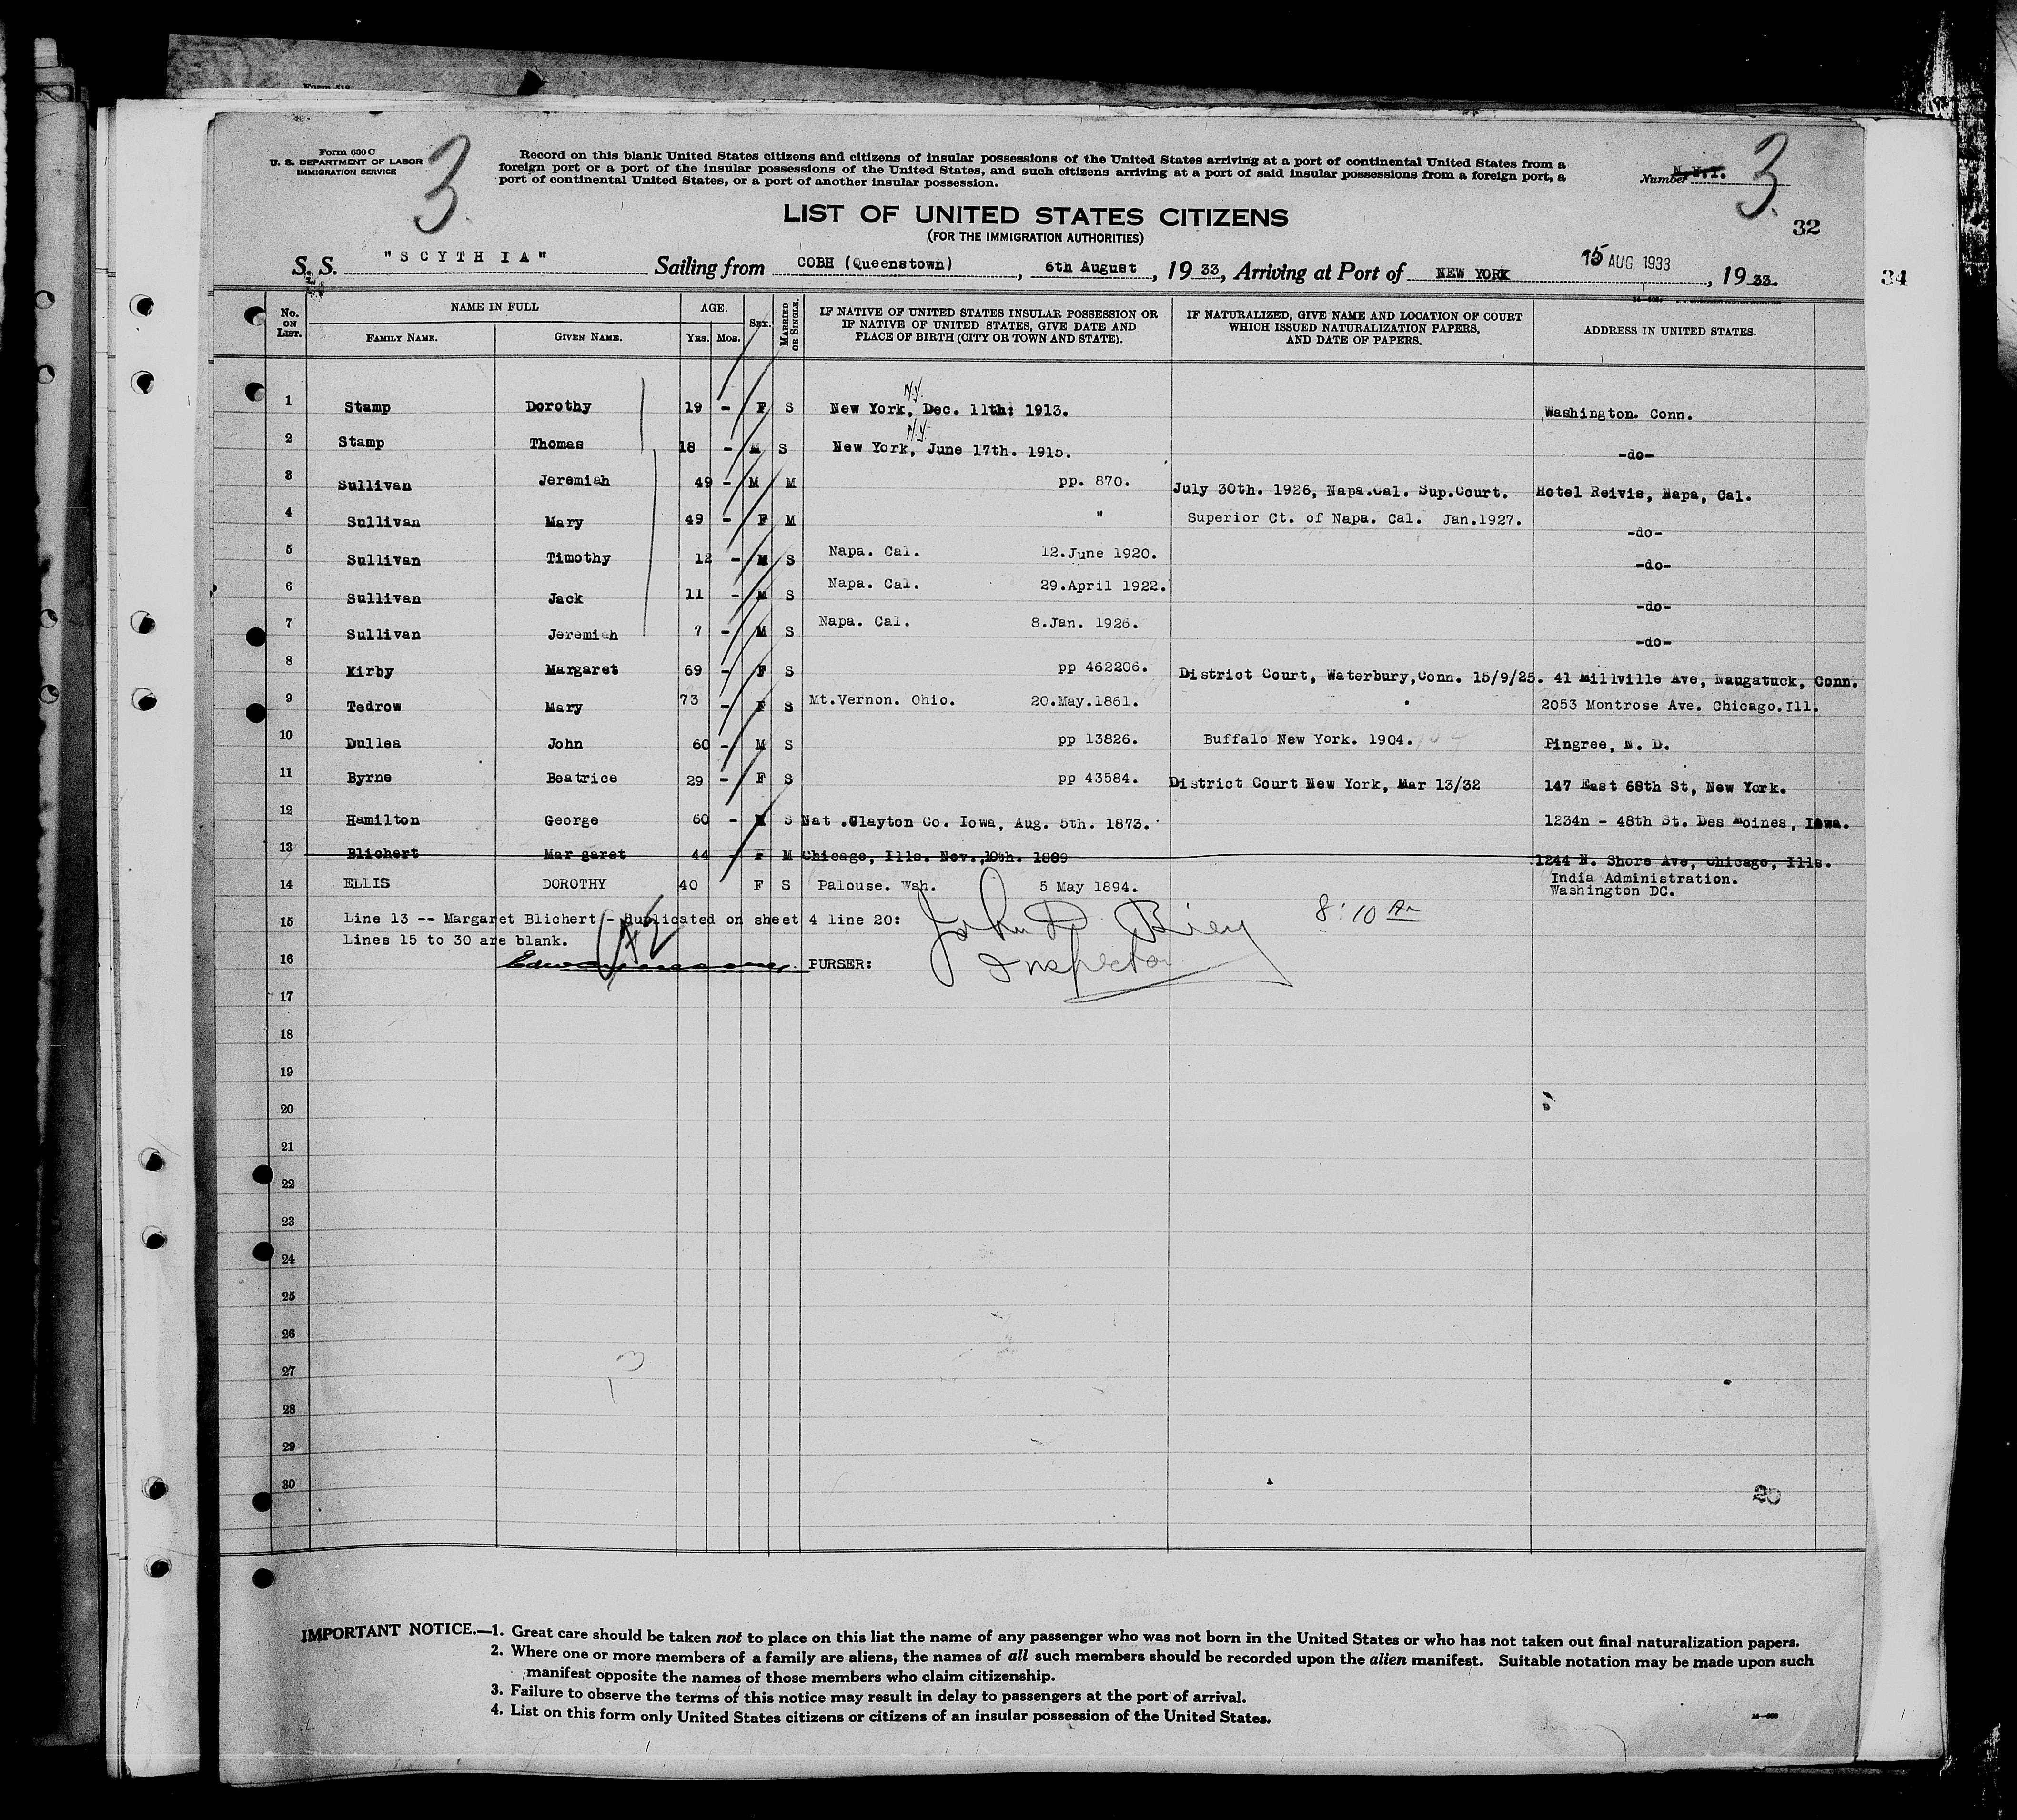 Form 630 C
U. S. DEPARTMENT OF LABOR
IMMIGRATION SERVICE
3
Record on this blank United States citizens and citizens of insular possessions of the United States arriving at a port of continental United States from a
foreign port or a port of the insular possessions of the United States, and such citizens arriving at a port of said insular possessions from a foreign port, a
port of continental United States, or a port of another insular possession.
Number N.N.Y. 3
LIST OF UNITED STATES CITIZENS
(FOR THE IMMIGRATION AUTHORITIES)
32
S. S. "SCYTHIA" Sailing from COBH (Queenstown), 6th August, 19 33, Arriving at Port of NEW YORK 15 AUG. 1933, 19 33.
34
No. ON LIST. NAME IN FULL AGE. SEX. MARRIED OR SINGLE. IF NATIVE OF UNITED STATES INSULAR POSSESSION OR IF NATIVE OF UNITED STATES, GIVE DATE AND PLACE OF BIRTH (CITY OR TOWN AND STATE). IF NATURALIZED, GIVE NAME AND LOCATION OF COURT WHICH ISSUED NATURALIZATION PAPERS, AND DATE OF PAPERS. ADDRESS IN UNITED STATES.
FAMILY NAME. GIVEN NAME. YRS. MOS.
N.Y.
1 Stamp Dorothy 19 - F S New York, Dec. 11th: 1913. Washington. Conn.
N.Y.
2 Stamp Thomas 18 - M S New York, June 17th. 1915. -do-
3 Sullivan Jeremiah 49 - M M pp. 870. July 30th. 1926, Napa.Cal. Sup.Court. Hotel Reivis, Napa, Cal.
4 Sullivan Mary 49 - F M " Superior Ct. of Napa. Cal. Jan.1927. -do-
5 Sullivan Timothy 12 - M S Napa. Cal. 12.June 1920. -do-
6 Sullivan Jack 11 - M S Napa. Cal. 29.April 1922. -do-
7 Sullivan Jeremiah 7 - M S Napa. Cal. 8.Jan. 1926. -do-
8 Kirby Margaret 69 - F S pp 462206. District Court, Waterbury,Conn. 15/9/25. 41 Millville Ave, Naugatuck, Conn.
9 Tedrow Mary 73 - F S Mt.Vernon. Ohio. 20.May.1861. 2053 Montrose Ave. Chicago.Ill.
10 Dullea John 60 - M S pp 13826. Buffalo New York. 1904. Pingree, N. D.
11 Byrne Beatrice 29 - F S pp 43584. District Court New York, Mar 13/32 147 East 68th St, New York.
12 Hamilton George 60 - M S Nat .Clayton Co. Iowa, Aug. 5th. 1873. 1234n - 48th St. Des Moines, Iowa.
13 Blichert Margaret 44 F M Chicago, Ills. Nov.,10th. 1889 1244 N. Shore Ave, Chicago, Ills.
14 ELLIS DOROTHY 40 F S Palouse. Wsh. 5 May 1894. India Administration.
Washington DC.
15 Line 13 -- Margaret Blichert - duplicated on sheet 4 line 20:
8:10 Am
Lines 15 to 30 are blank.
John D
16 PURSER: Inspector
17
18
19
20
21
22
23
24
25
26
27
28
29
30
20
IMPORTANT NOTICE.—1. Great care should be taken not to place on this list the name of any passenger who was not born in the United States or who has not taken out final naturalization papers.
2. Where one or more members of a family are aliens, the names of all such members should be recorded upon the alien manifest. Suitable notation may be made upon such
manifest opposite the names of those members who claim citizenship.
3. Failure to observe the terms of this notice may result in delay to passengers at the port of arrival.
4. List on this form only United States citizens or citizens of an insular possession of the United States.